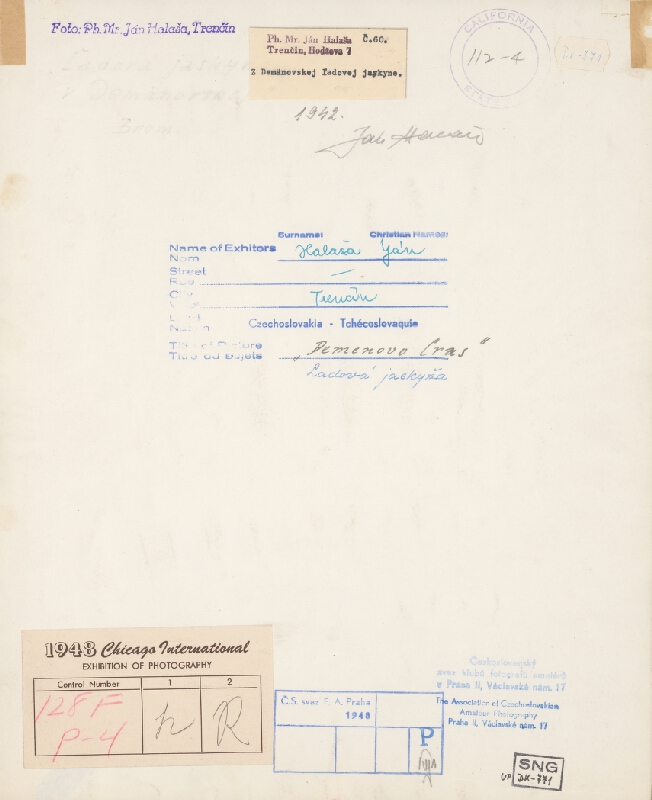 Foto: Ph. Mr. Ján Halaša, Trenčín
Ph. Mr. Ján Halaša Č.60.
Trenčín, Hodžova 7
Z Demänovskej ľadovej jaskyne.
CALIFORNIA
112-4
STATE
1942.
Surname: Christian Names:
Name of Exhitors Halaša Ján
Nom
Street —
Rue
City Trenčín
Czechoslovakia - Tchécoslovaquie
Title of Picture „Demenovo Cras“
Titre du Sujets
Ladová jaskyňa
1948 Chicago International
EXHIBITION OF PHOTOGRAPHY
Control Number 1 2
128F
P-4
h R
Č.S. svaz F. A. Praha
1948
P
Československý
svaz klubů fotografů amatérů
v Praze II, Václavské nám. 17
The Association of Czechoslovakian
Amateur Photography
Praha II, Václavské nám. 17
SNG
UP DK-371